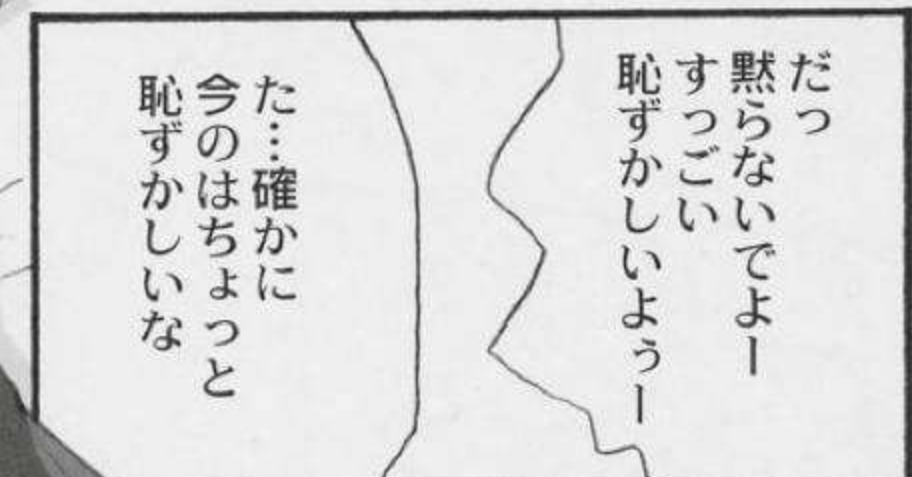 だっ
黙らないでよー
すっごい
恥ずかしいよぅー
た…確かに
今のはちょっと
恥ずかしいな